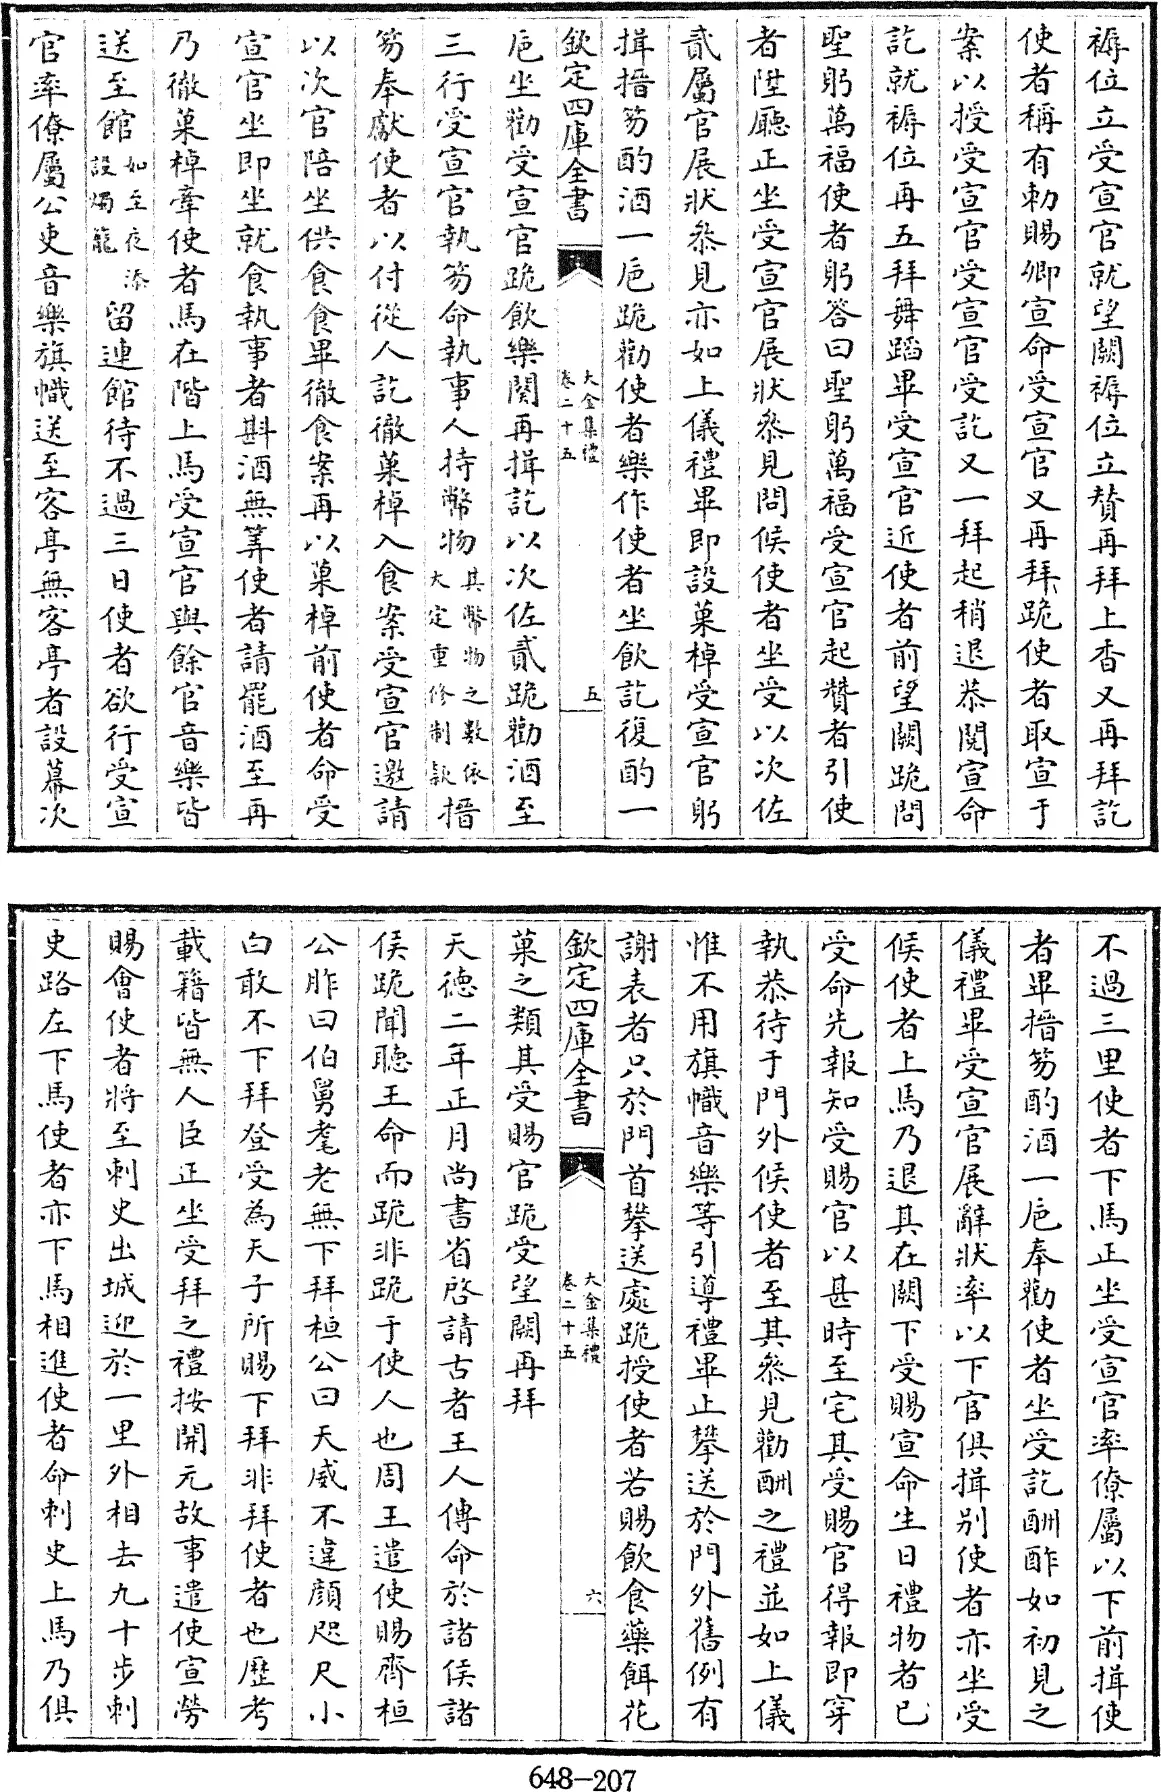 褥位立受宣官就望闕褥位立贊再拜上香又再拜訖
使者稱有勅賜卿宣命受宣官又再拜跪使者取宣于
案以授受宣官受宣官受訖又一拜起稍退恭閱宣命
訖就褥位再五拜舞蹈畢受宣官近使者前望闕跪問
聖躬萬福使者躬答曰聖躬萬福受宣官起贊者引使
者陞廳正坐受宣官展狀叅見問候使者坐受以次佐
貳屬官展狀叅見亦如上儀禮畢即設菓棹受宣官躬
揖搢笏酌酒一巵跪勸使者樂作使者坐飲訖復酌一
欽定四庫全書
大金集禮
卷二十五
五
巵坐勸受宣官跪飲樂闋再揖訖以次佐貳跪勸酒至
三行受宣官執笏命執事人持幣物其幣物之數依大定重修制款搢
笏奉獻使者以付從人訖徹菓棹入食案受宣官邀請
以次官陪坐供食食畢徹食案再以菓棹前使者命受
宣官坐即坐就食執事者斟酒無筭使者請罷酒至再
乃徹菓棹牽使者馬在階上馬受宣官與餘官音樂皆
送至館如至夜添設燭籠留連館待不過三日使者欲行受宣
官率僚屬公吏音樂旗幟送至客亭無客亭者設幕次
不過三里使者下馬正坐受宣官率僚屬以下前揖使
者畢搢笏酌酒一巵奉勸使者坐受訖酬酢如初見之
儀禮畢受宣官展辭狀率以下官俱揖别使者亦坐受
候使者上馬乃退其在闕下受賜宣命生日禮物者已
受命先報知受賜官以甚時至宅其受賜官得報即穿
執恭待于門外候使者至其叅見勸酬之禮並如上儀
惟不用旗幟音樂等引導禮畢止攀送於門外舊例有
謝表者只於門首攀送處跪授使者若賜飲食藥餌花
欽定四庫全書
大金集禮
卷二十五
六
菓之類其受賜官跪受望闕再拜
天德二年正月尚書省啓請古者王人傳命於諸侯諸
侯跪聞聽王命而跪非跪于使人也周王遣使賜齊桓
公胙曰伯舅耄老無下拜桓公曰天威不違顔咫尺小
白敢不下拜登受為天子所賜下拜非拜使者也歷考
載籍皆無人臣正坐受拜之禮按開元故事遣使宣勞
賜會使者將至刺史出城迎於一里外相去九十步刺
史路左下馬使者亦下馬相進使者命刺史上馬乃俱
648-207